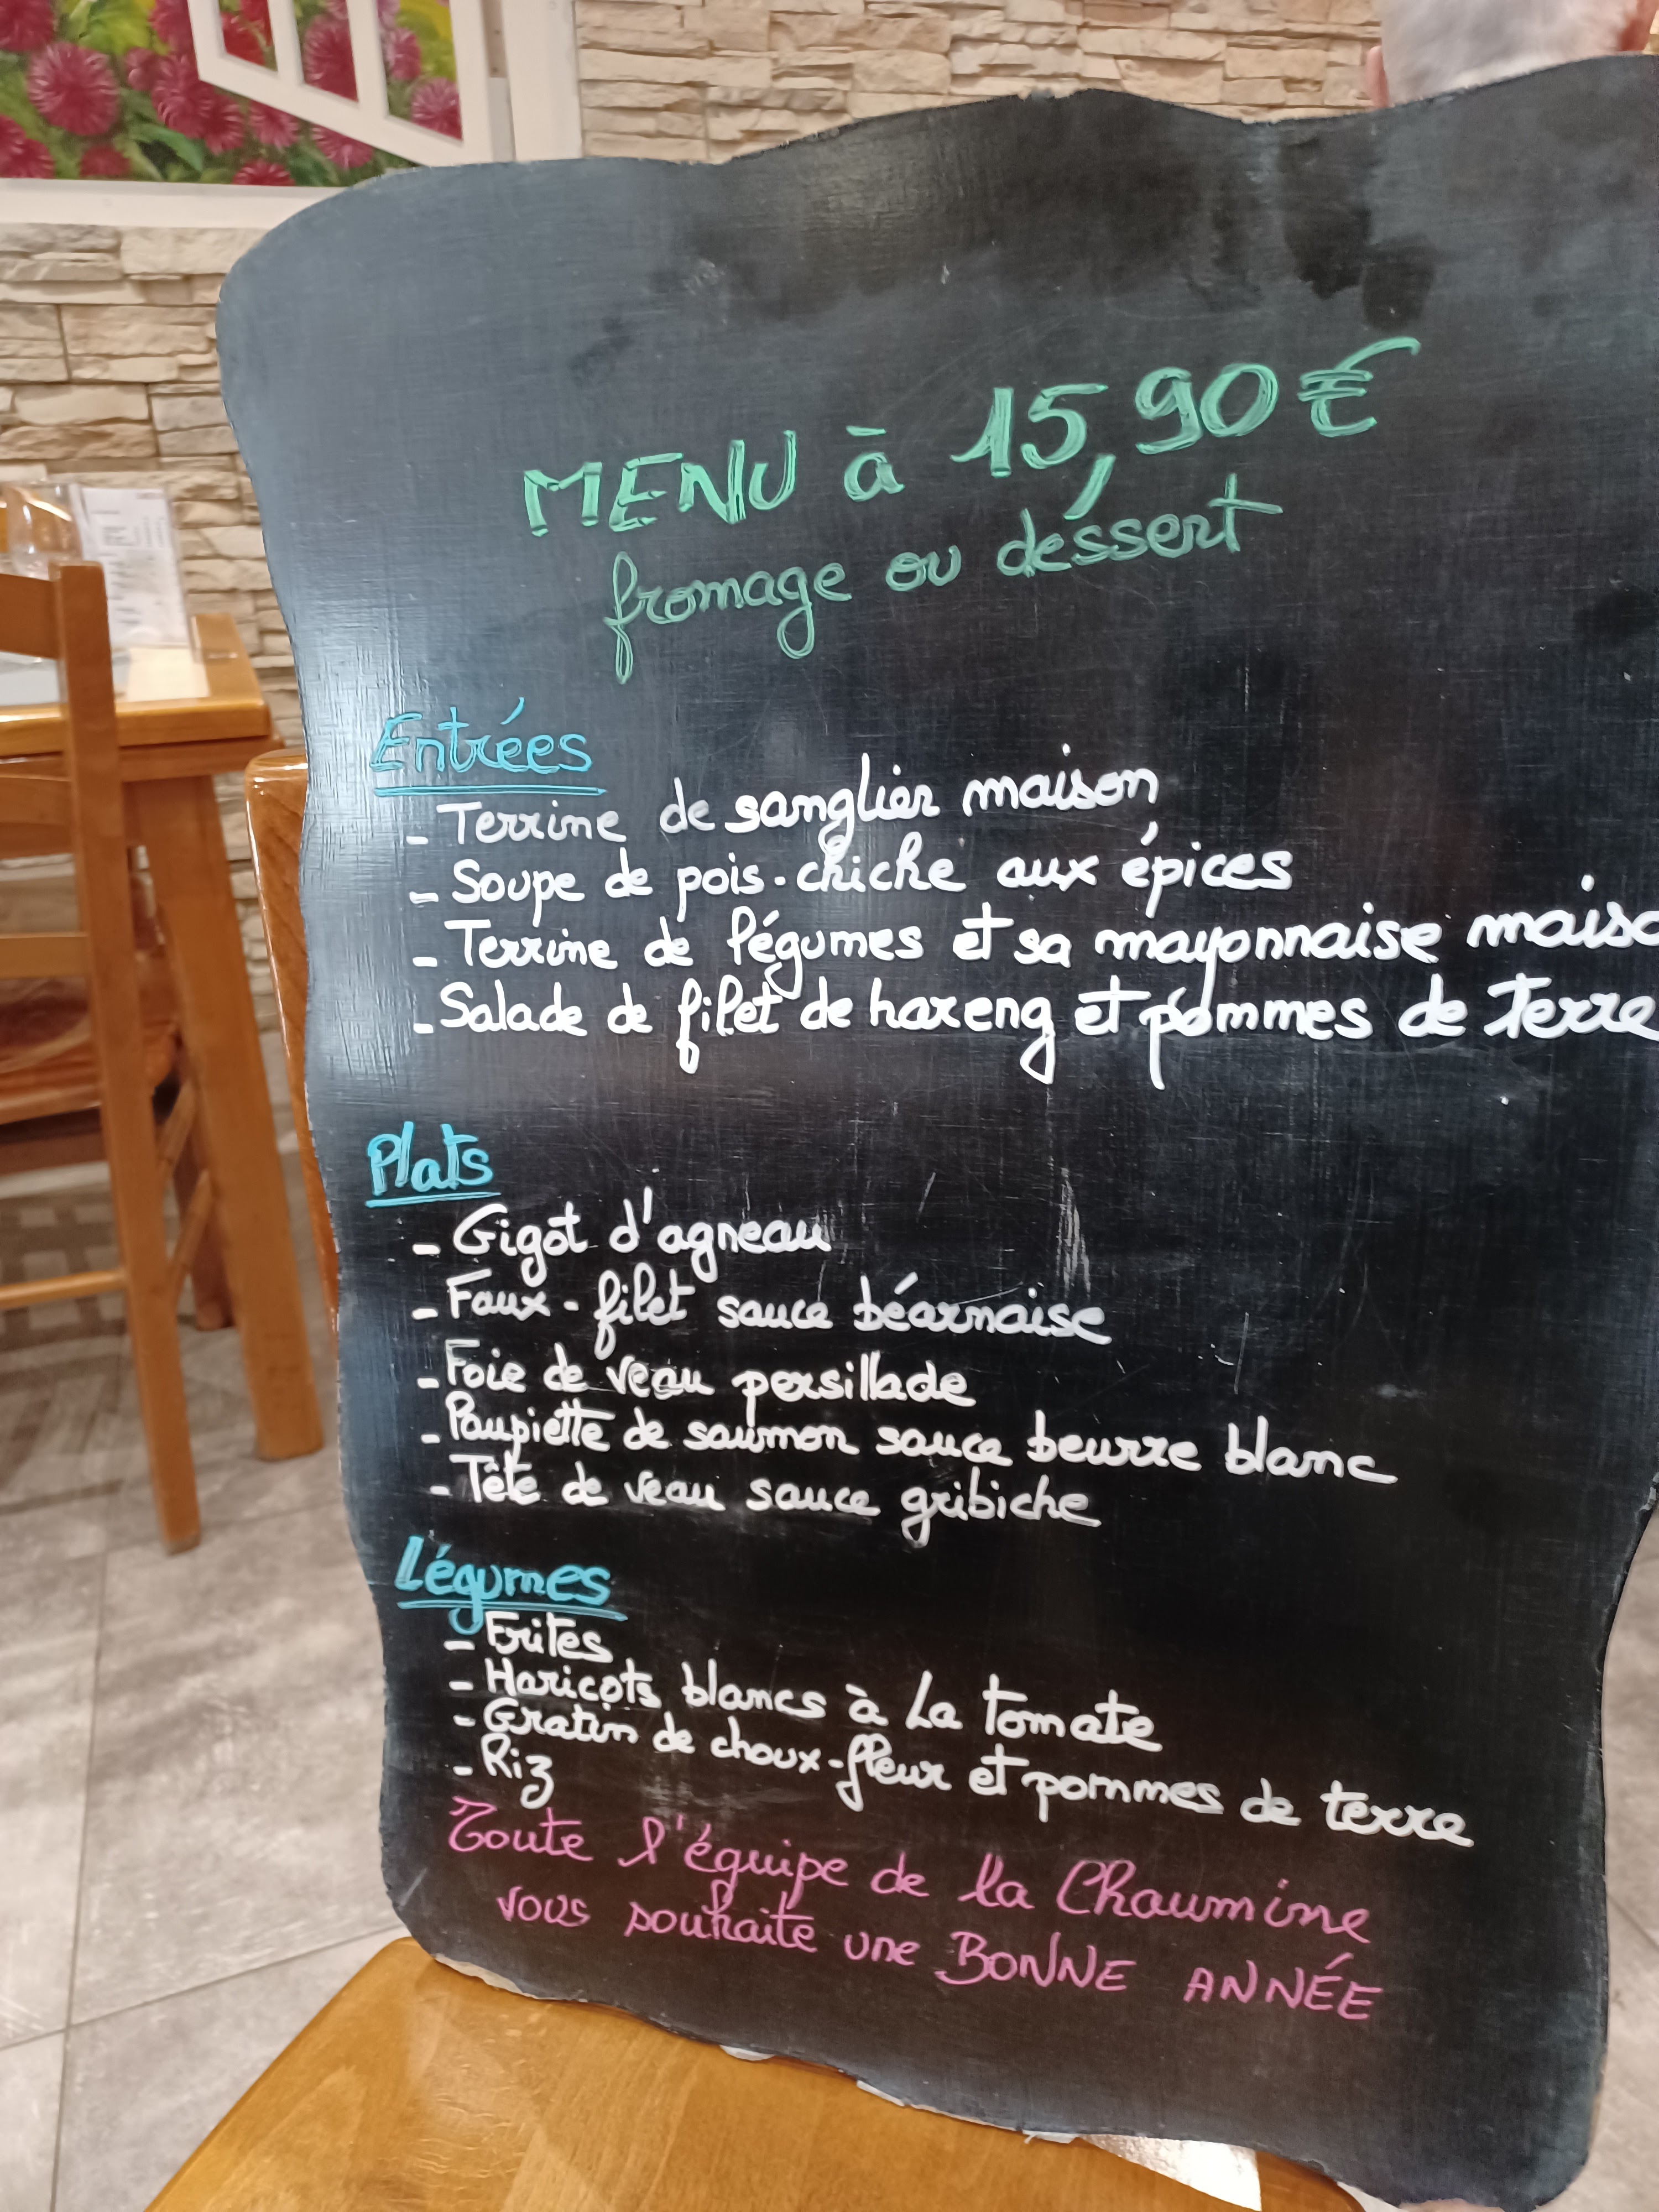 MENU à 15,90€
fromage ou dessert
Entrées
- Terrine de sanglier maison
- Soupe de pois-chiche aux épices
- Terrine de légumes et sa mayonnaise maiso
- Salade de filet de hareng et pommes de terre
Plats
- Gigot d'agneau
- Faux-filet sauce béarnaise
- Foie de veau persillade
- Paupiette de saumon sauce beurre blanc
- Tête de veau sauce gribiche
Légumes
- Frites
- Haricots blancs à La tomate
- Gratin de choux-fleur et pommes de terre
- Riz
Toute l'équipe de la Chaumine
vous souhaite une BONNE ANNÉE